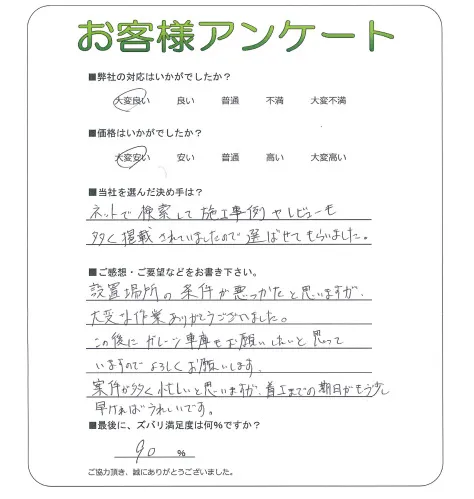 お客様アンケート
■弊社の対応はいかがでしたか？
大変良い 良い 普通 不満 大変不満
■価格はいかがでしたか？
大変安い 安い 普通 高い 大変高い
■当社を選んだ決め手は？
ネットで検索して施工事例やレビューも
多く掲載されていましたので選ばせてもらいました。
■ご感想・ご要望などをお書き下さい。
設置場所の条件が悪かったと思いますが、
大変な作業ありがとうございました。
この後にガレージ車庫もお願いしたいと思って
いますのでよろしくお願いします。
案件が多く忙しいと思いますが、着工までの期日がもう少し
早ければうれしいです。
■最後に、ズバリ満足度は何％ですか？
90 ％
ご協力頂き、誠にありがとうございました。